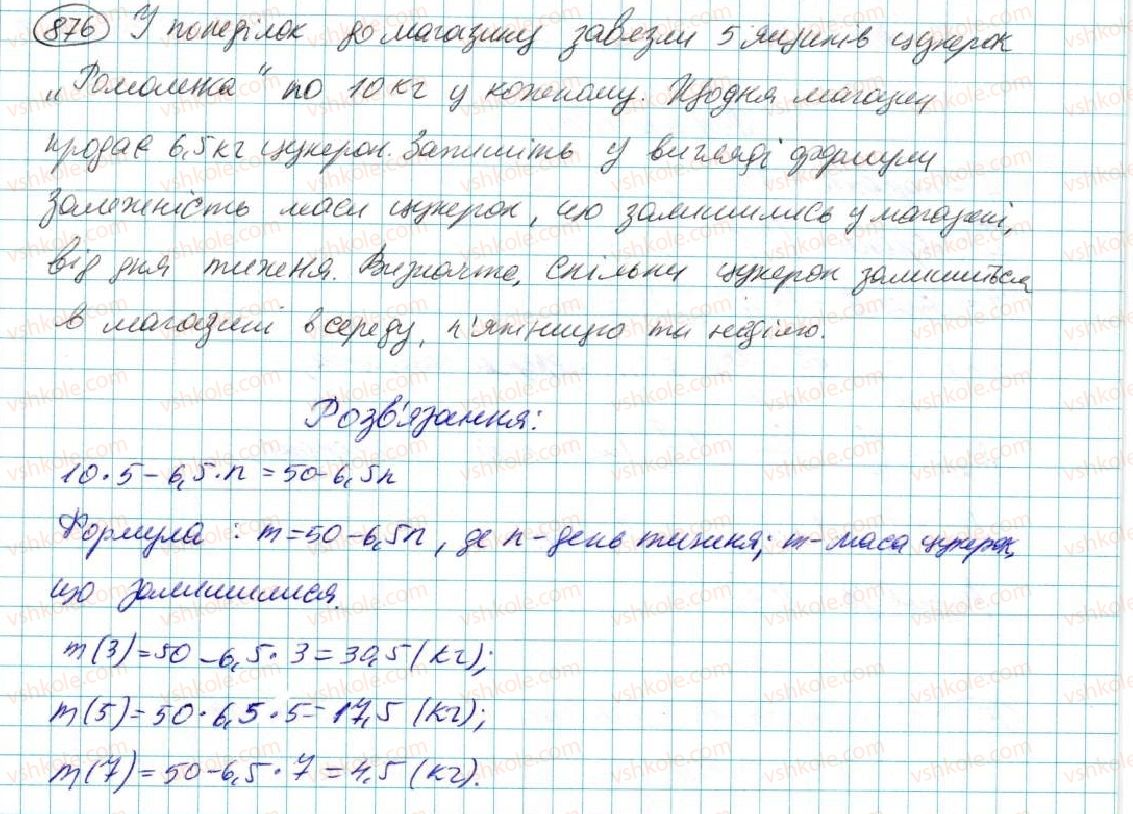 876 У понеділок до магазину завезли 5 ящиків цукерок
„Ромашка" по 10 кг у кожному. Щодня магазин
продає 6,5 кг цукерок. Запишіть у вигляді формули
залежність маси цукерок, що залишились у магазині,
від дня тижня. Визначте, скільки цукерок залишиться
в магазині в середу, п'ятницю та неділю.
Розв'язання:
10·5-6,5·n=50-6,5n
Формула: m=50-6,5n, де n-день тижня; m-маса цукерок,
що залишилися.
m(3)=50-6,5·3=30,5(кг);
m(5)=50·6,5·5=17,5 (кг);
m(7)=50-6,5·7=4,5(кг).
vshkole.com